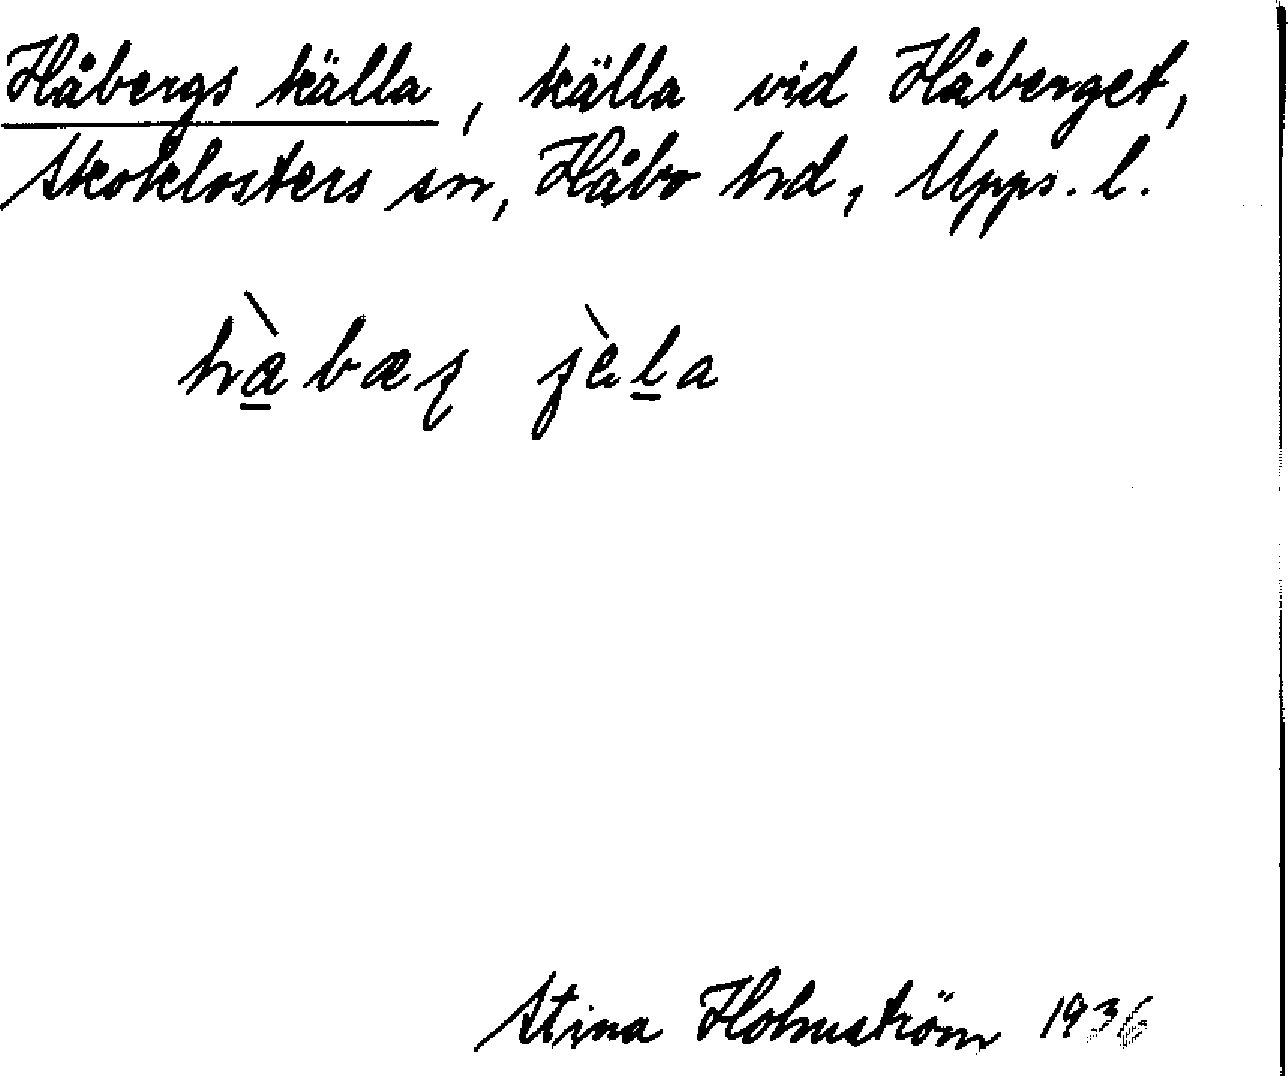 Håbergs källa, källa vid Håberget,
Skoklosters sn, Håbo hd, Upps. l.
Stina Holmström 1936